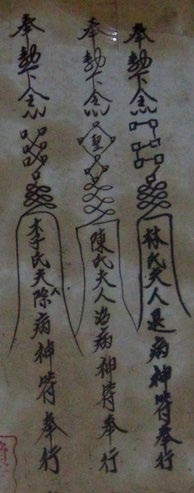 奉勅下
林氏夫人退病神符奉行
奉勅下
皇
陳氏夫人治病神符奉行
奉勅下
李氏夫人除病神符奉行